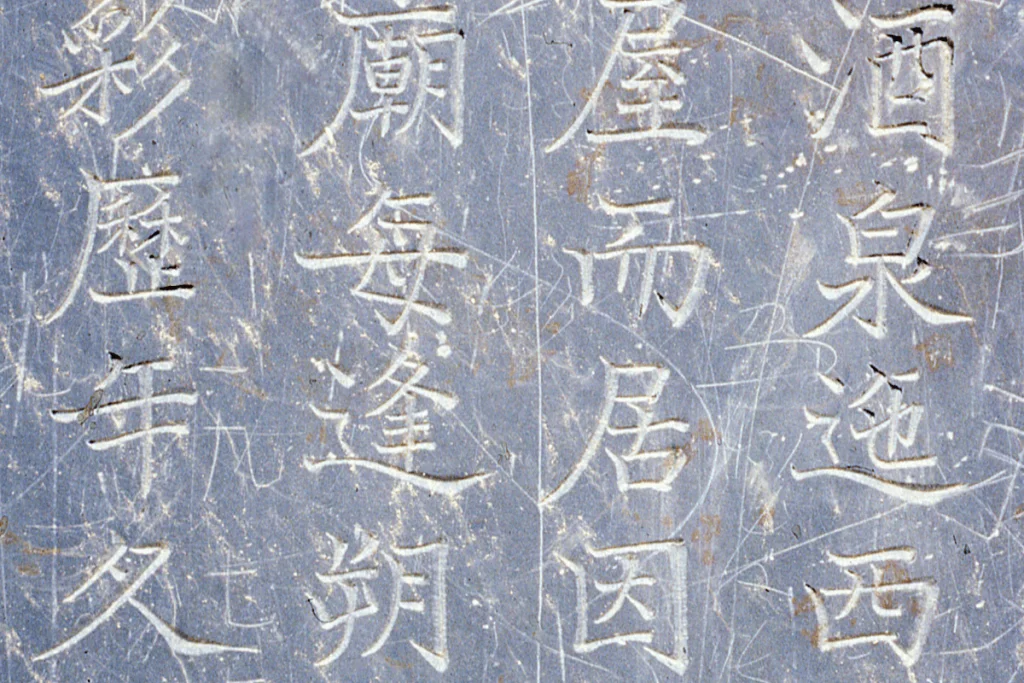 酒泉迤西
屋而居因
廟每逢朔
彩歷年久